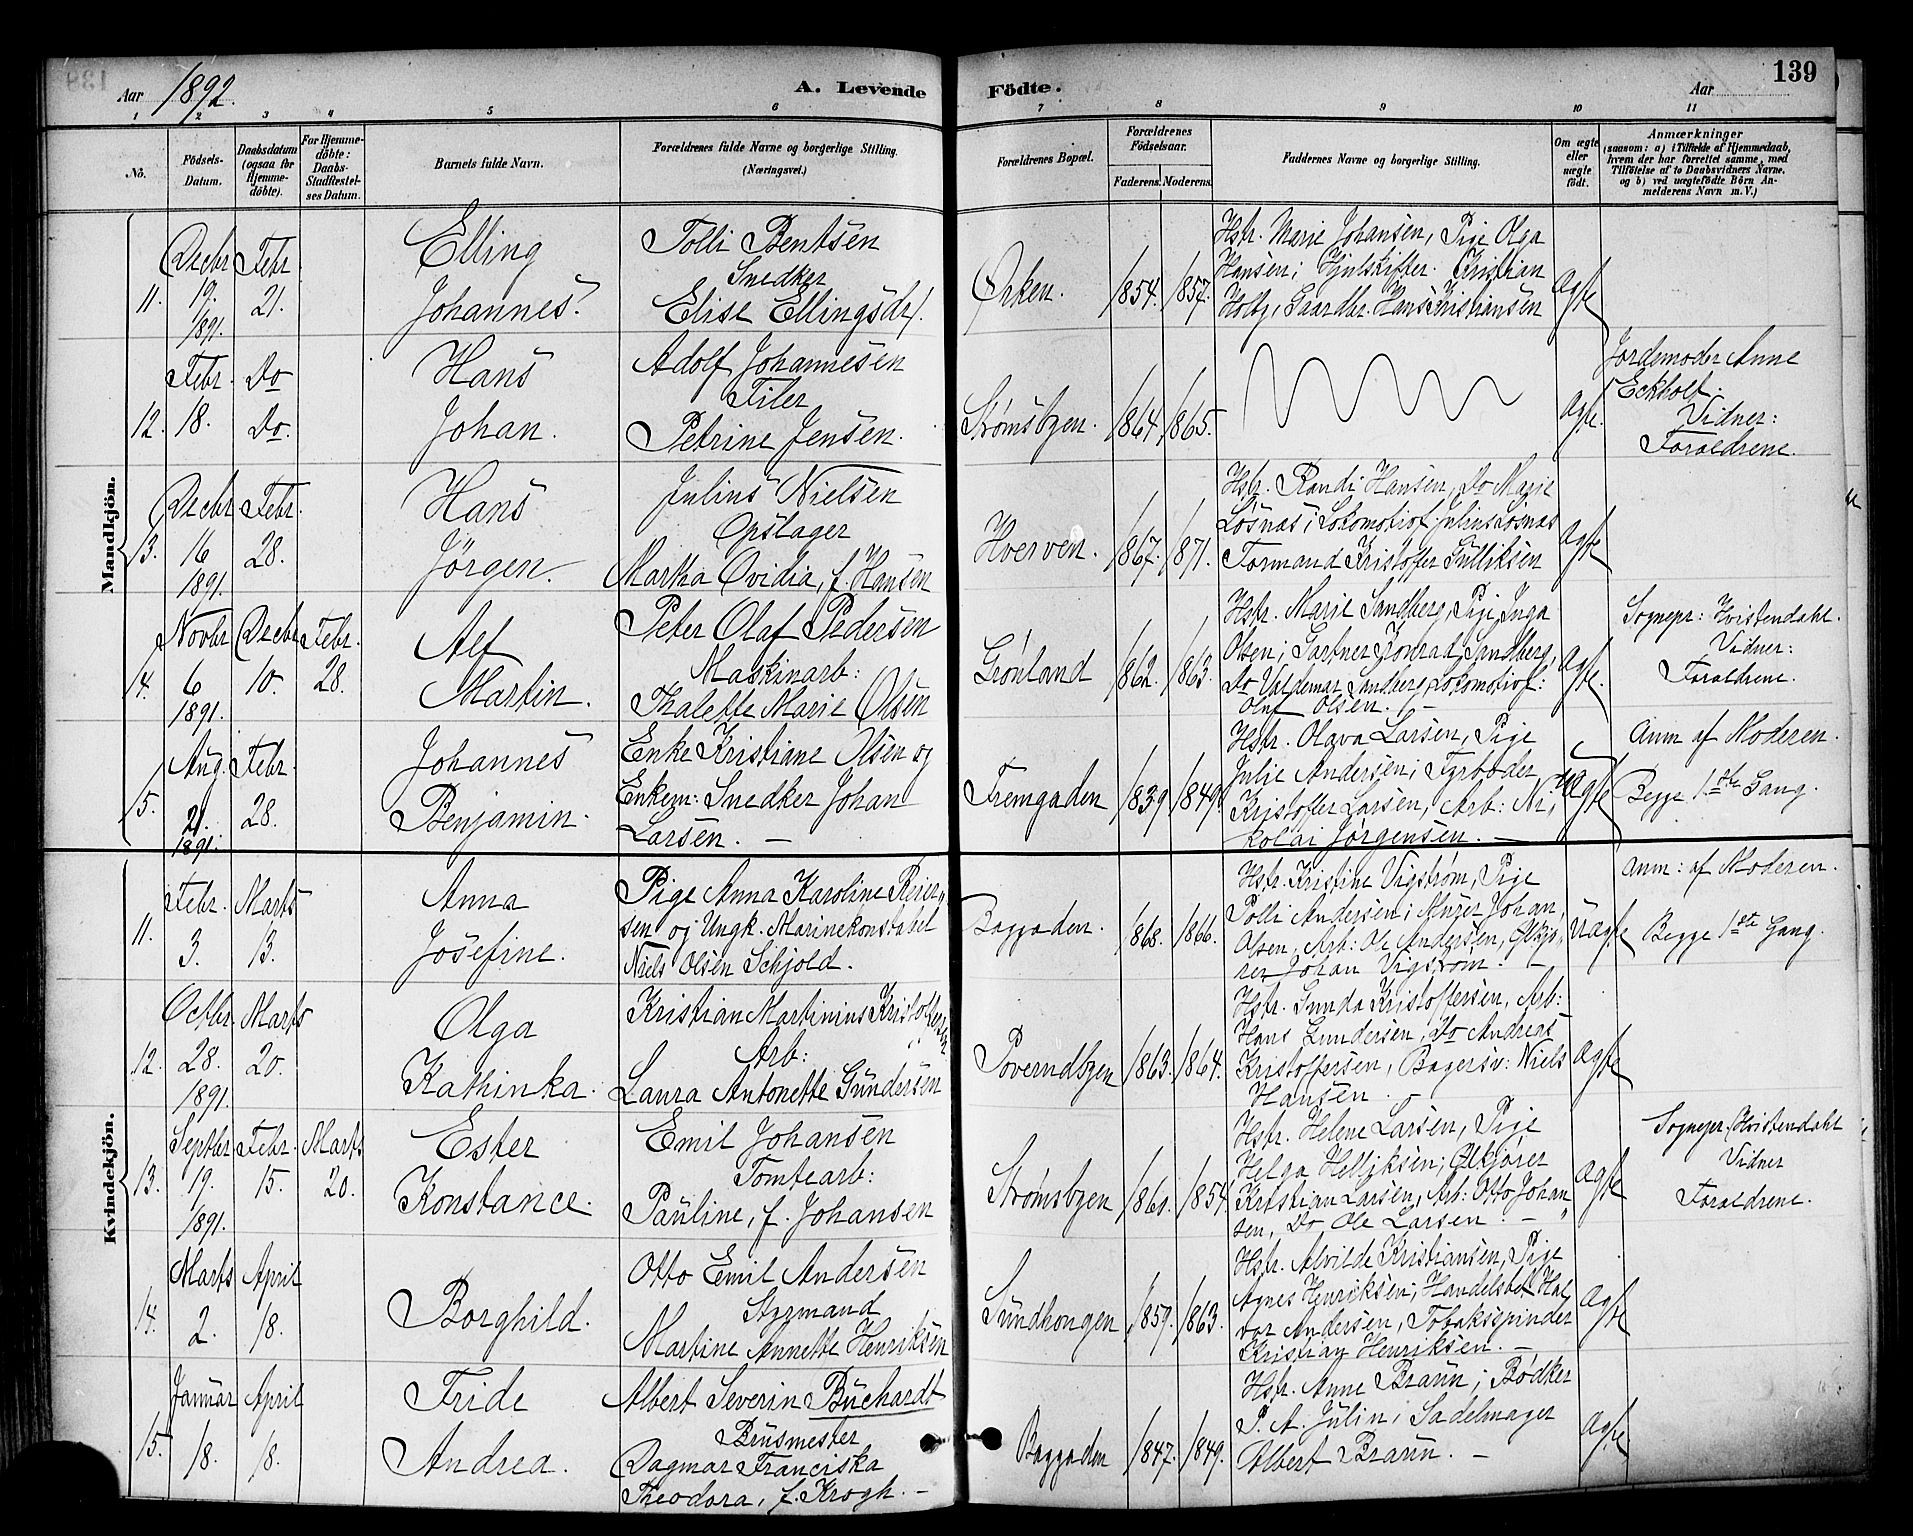 139
Aar 1892.
A. Levende Födte.
Aar
1 2 3 4 5 6 7 8 9 10 11
No.
Födsels-Datum.
Daabsdatum (ogsaa for Hjemme-döbte).
For Hjemme-döbte: Daabs-Stadfæstel-ses Datum.
Barnets fulde Navn.
Forældrenes fulde Navne og borgerlige Stilling.
(Næringsvei.)
Forældrenes Bopæl.
Forældrenes Födselsaar.
Faderens. Moderens.
Faddernes Navne og borgerlige Stilling.
Om ægte eller uægte födt.
Anmærkninger
(saasom: a) i Tilfælde af Hjemmedaab, hvem der har forrettet samme, med Tilföielse af to Daabsvidners Navne, og b) ved uægtefödte Börn An-melderens Navn m. V.)
Mandkjön.
11.
Decbr 19. 1891.
Febr. 21.
Elling
Johannes.
Tolli Bentsen
Snedker
Elise Ellingsdr.
Ørken.
1854. 1857.
Hstr. Marie Johansen, Pige Olga
Hansen; Hjulskifter Kristian
Holby, Gaardbr. Hans Kristiansen
Ægte
12.
Febr. 18.
Do Do.
Hans
Johan.
Adolf Johannesen
Filer
Petrine Jensen.
Strømsbyen.
1864. 1865.
Ægte.
Jordemoder Anne
Eckholt.
Vidner:
Forældrene.
13.
Decbr 16 1891.
Febr. 28.
Hans
Jörgen.
Julius Nielsen
Opslager
Martha Ovidia, f. Hansen
Hverven.
1867. 1871.
Hstr. Randi Hansen, Do Marie
Løsnæs; Lokomotivf. Julius Løsnæs
Formand Kristoffer Gulliksen
Ægte
14.
Novbr 6 1891.
Decbr 10.
Febr. 28.
Alf
Martin.
Peter Olaf Pedersen
Maskinarb:
Thalette Marie Olsen
Grønland
1862. 1863.
Hstr. Marie Sandberg, Pige Inga
Olsen; Gartner Konrad Sandberg,
Do Valdemar Sandberg, Lokomotivf:
Oluf Olsen. —
Ægte.
Sognepr: Hvistendahl.
Vidner:
Forældrene.
15.
Aug. 21. 1891.
Febr. 28.
Johannes
Benjamin.
Enke Kristiane Olsen og
Enkem: Snedker Johan
Larsen. —
Fremgaden
1839 1849.
Hstr. Olava Larsen, Pige
Julie Andersen; Fyrbøder
Kristoffer Larsen, Arb: Ni-
kolai Jørgensen. —
Uægte
Anm af Moderen.
Begge 1ste Gang.
Kvindekjön.
11.
Febr. 3.
Marts 13.
Anna
Josefine.
Pige Anna Karoline Reier-
sen og Ungk. Marinekonstabel
Niels Olsen Schjold.
Baggaden.
1868. 1866.
Hstr. Kristine Vigstrøm, Pige
Polli Andersen; Murer Johan
Olsen, Arb: Ole Andersen, Ølkjø-
rer Johan Vigstrøm. —
Uægte
Anm: af Moderen.
Begge 1ste Gang.
12.
Octbr. 28. 1891.
Marts 20.
Olga
Kathinka.
Kristian Martinius Kristoffersen
Arb:
Laura Antonette Gundersen
Poverudbyen
1863. 1864.
Hstr. Gunda Kristoffersen, Arb:
Hans Gundersen, Do Andreas
Kristoffersen, Bagersv: Niels
Hansen.
Ægte
13.
Septbr 19. 1891.
Febr. 15.
Marts 20.
Ester
Konstance.
Emil Johansen
Tomtearb:
Pauline, f. Johansen
Strømsbyen
1860. 1854.
Hstr. Helene Larsen, Pige
Helga Helliksen; Ølkjører
Kristian Larsen, Arb: Otto Johan-
sen, Do Ole Larsen. —
Ægte
Sognepr. Hvistendahl
Vidner
Forældrene.
14.
Marts 2.
April 18.
Borghild.
Otto Emil Andersen
Styrmand
Martine Annette Henriksen
Sundhougen
1859. 1863.
Hstr. Alvilde Kristiansen, Pige
Agnes Henriksen; Handelsbet. Hal-
vor Andersen, Tobaksspinder
Kristian Henriksen. —
Ægte
15.
Januar 18.
April 18.
Fride
Andrea.
Albert Severin Buchardt
Brusmester
Dagmar Franciska
Theodora, f. Krogh. —
Baggaden
1847. 1849.
Hstr. Anne Braun; Bødker
P. A. Julin, Sadelmager
Albert Braun. —
Ægte.